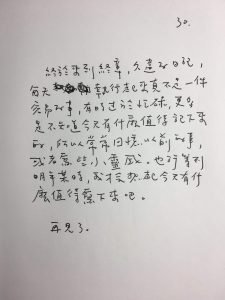 30.
終於來到終章，久違的日記，
每天執行起來真不是一件
容易的事，有時過於忙碌，更多
是不知道今天有什麼值得記下來
的，所以常常回憶以前的事，
或者寫些小靈感。也許等到
明年某時，我才想起今天有什
麼值得寫下來吧。
再見了。